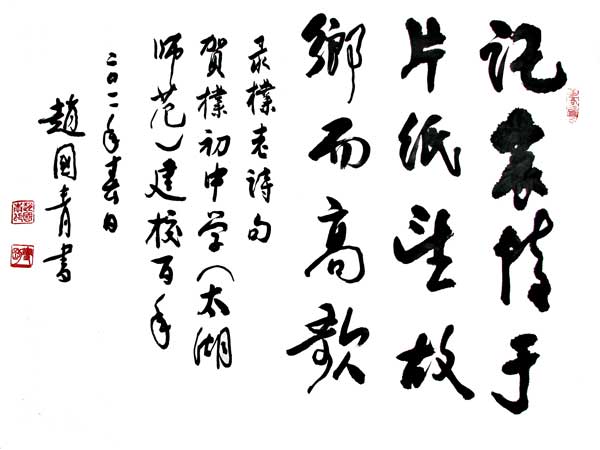 託衷情于
片紙望故
鄉而高歌
录樸老詩句
賀樸初中学（太湖
师范）建校百年
二〇一一年春日
趙國青書